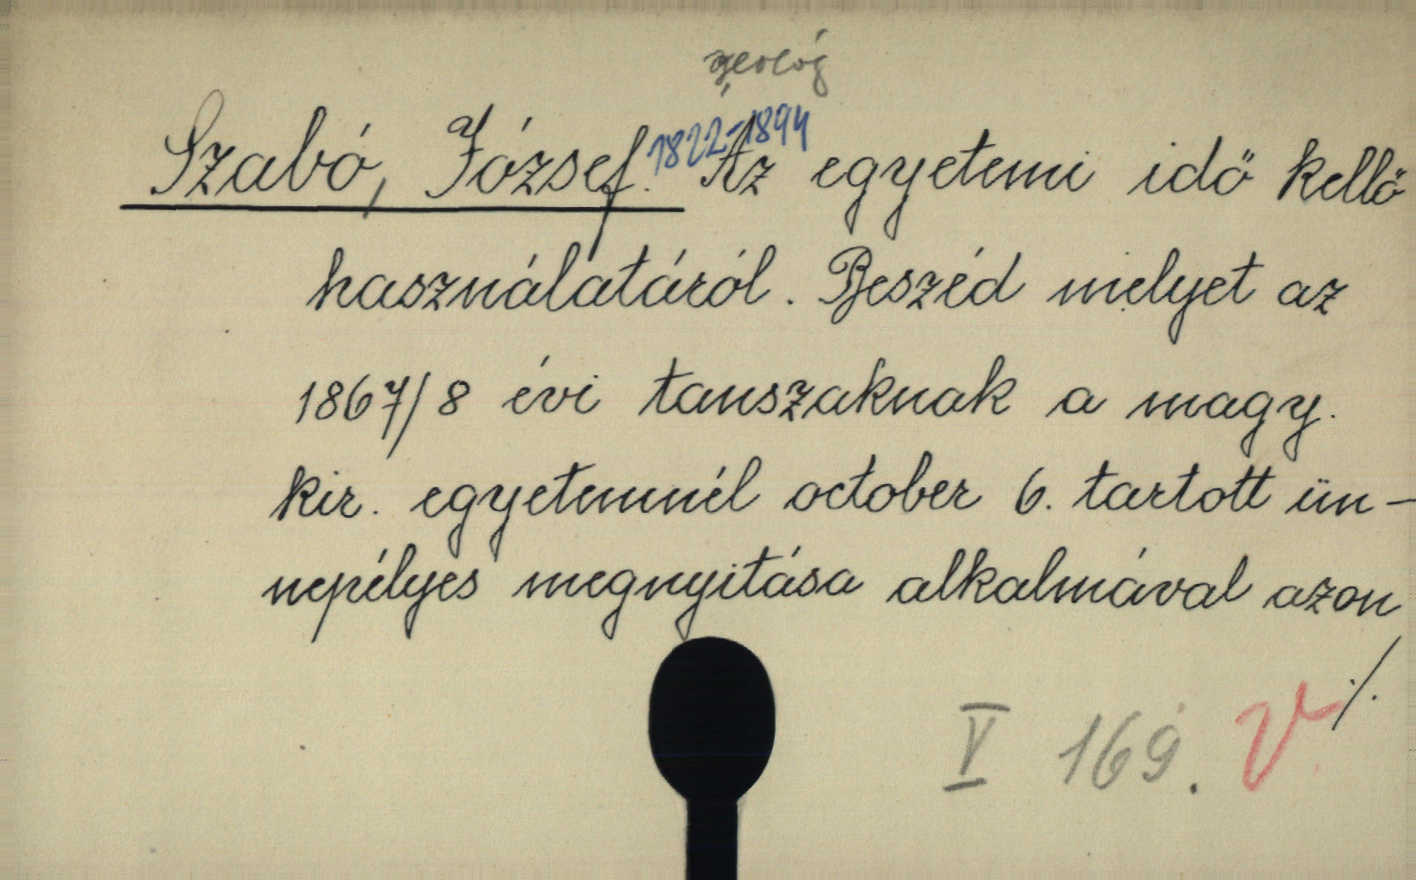 geológ
Szabó, József. 1822-1894 Az egyetemi idő kellő
használatáról. Beszéd melyet az
1867/8 évi tanszaknak a magy.
kir. egyetemnél october 6. tartott ün-
nepélyes megnyitása alkalmával azon
./.
V 169. V